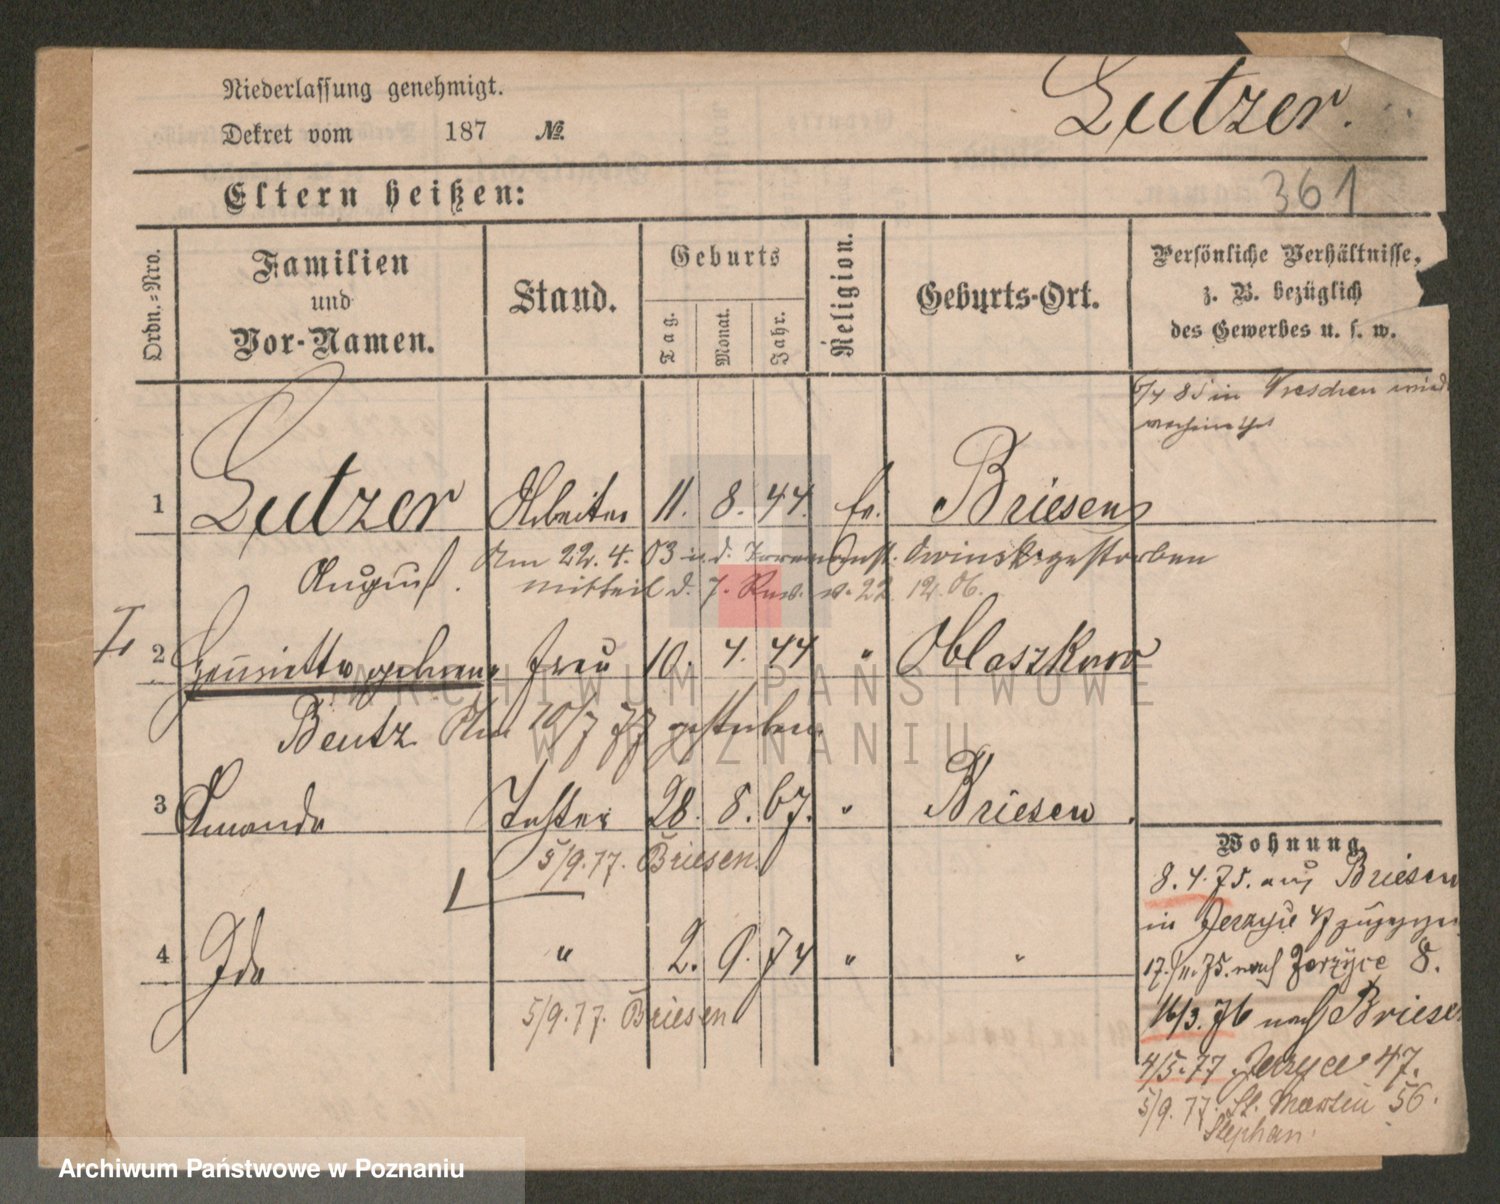 Niederlassung genehmigt.
Dekret vom 187 №
Lutzer.
361
Eltern heißen:
Ordn.=Nro.
Familien
und
Vor-Namen.
Stand.
Geburts
Tag.
Monat.
Jahr.
Religion.
Geburts-Ort.
Persönliche Verhältnisse,
z. B. bezüglich
des Gewerbes u. s. w.
85 in Wreschen
verheirathet
1 Lutzer Arbeiter 11. 8. 44. ev. Briesen
August.
Am 22. 4. 03 i. d. gestorben
mitteil d. 22. 12. 06.
2 Henriette geborene Frau 10. 4. 44 " Oblaszkowo
Beutz Am 10/7 77 gestorben
3 Amanda Tochter 28. 8. 67. " Briesen
5/9. 77. Briesen
4 Ida " 2. 9. 74 " "
5/9. 77. Briesen
Wohnung.
8. 4. 75. aus Briesen
in zugezogen
17./11. 75. nach Jerzyce 8.
16/3. 76 nach Briesen
4/5. 77 Jerzyce 47.
5/9. 77. St. Martin 56.
Stephan.
ARCHIWUM PAŃSTWOWE
W POZNANIU
Archiwum Państwowe w Poznaniu